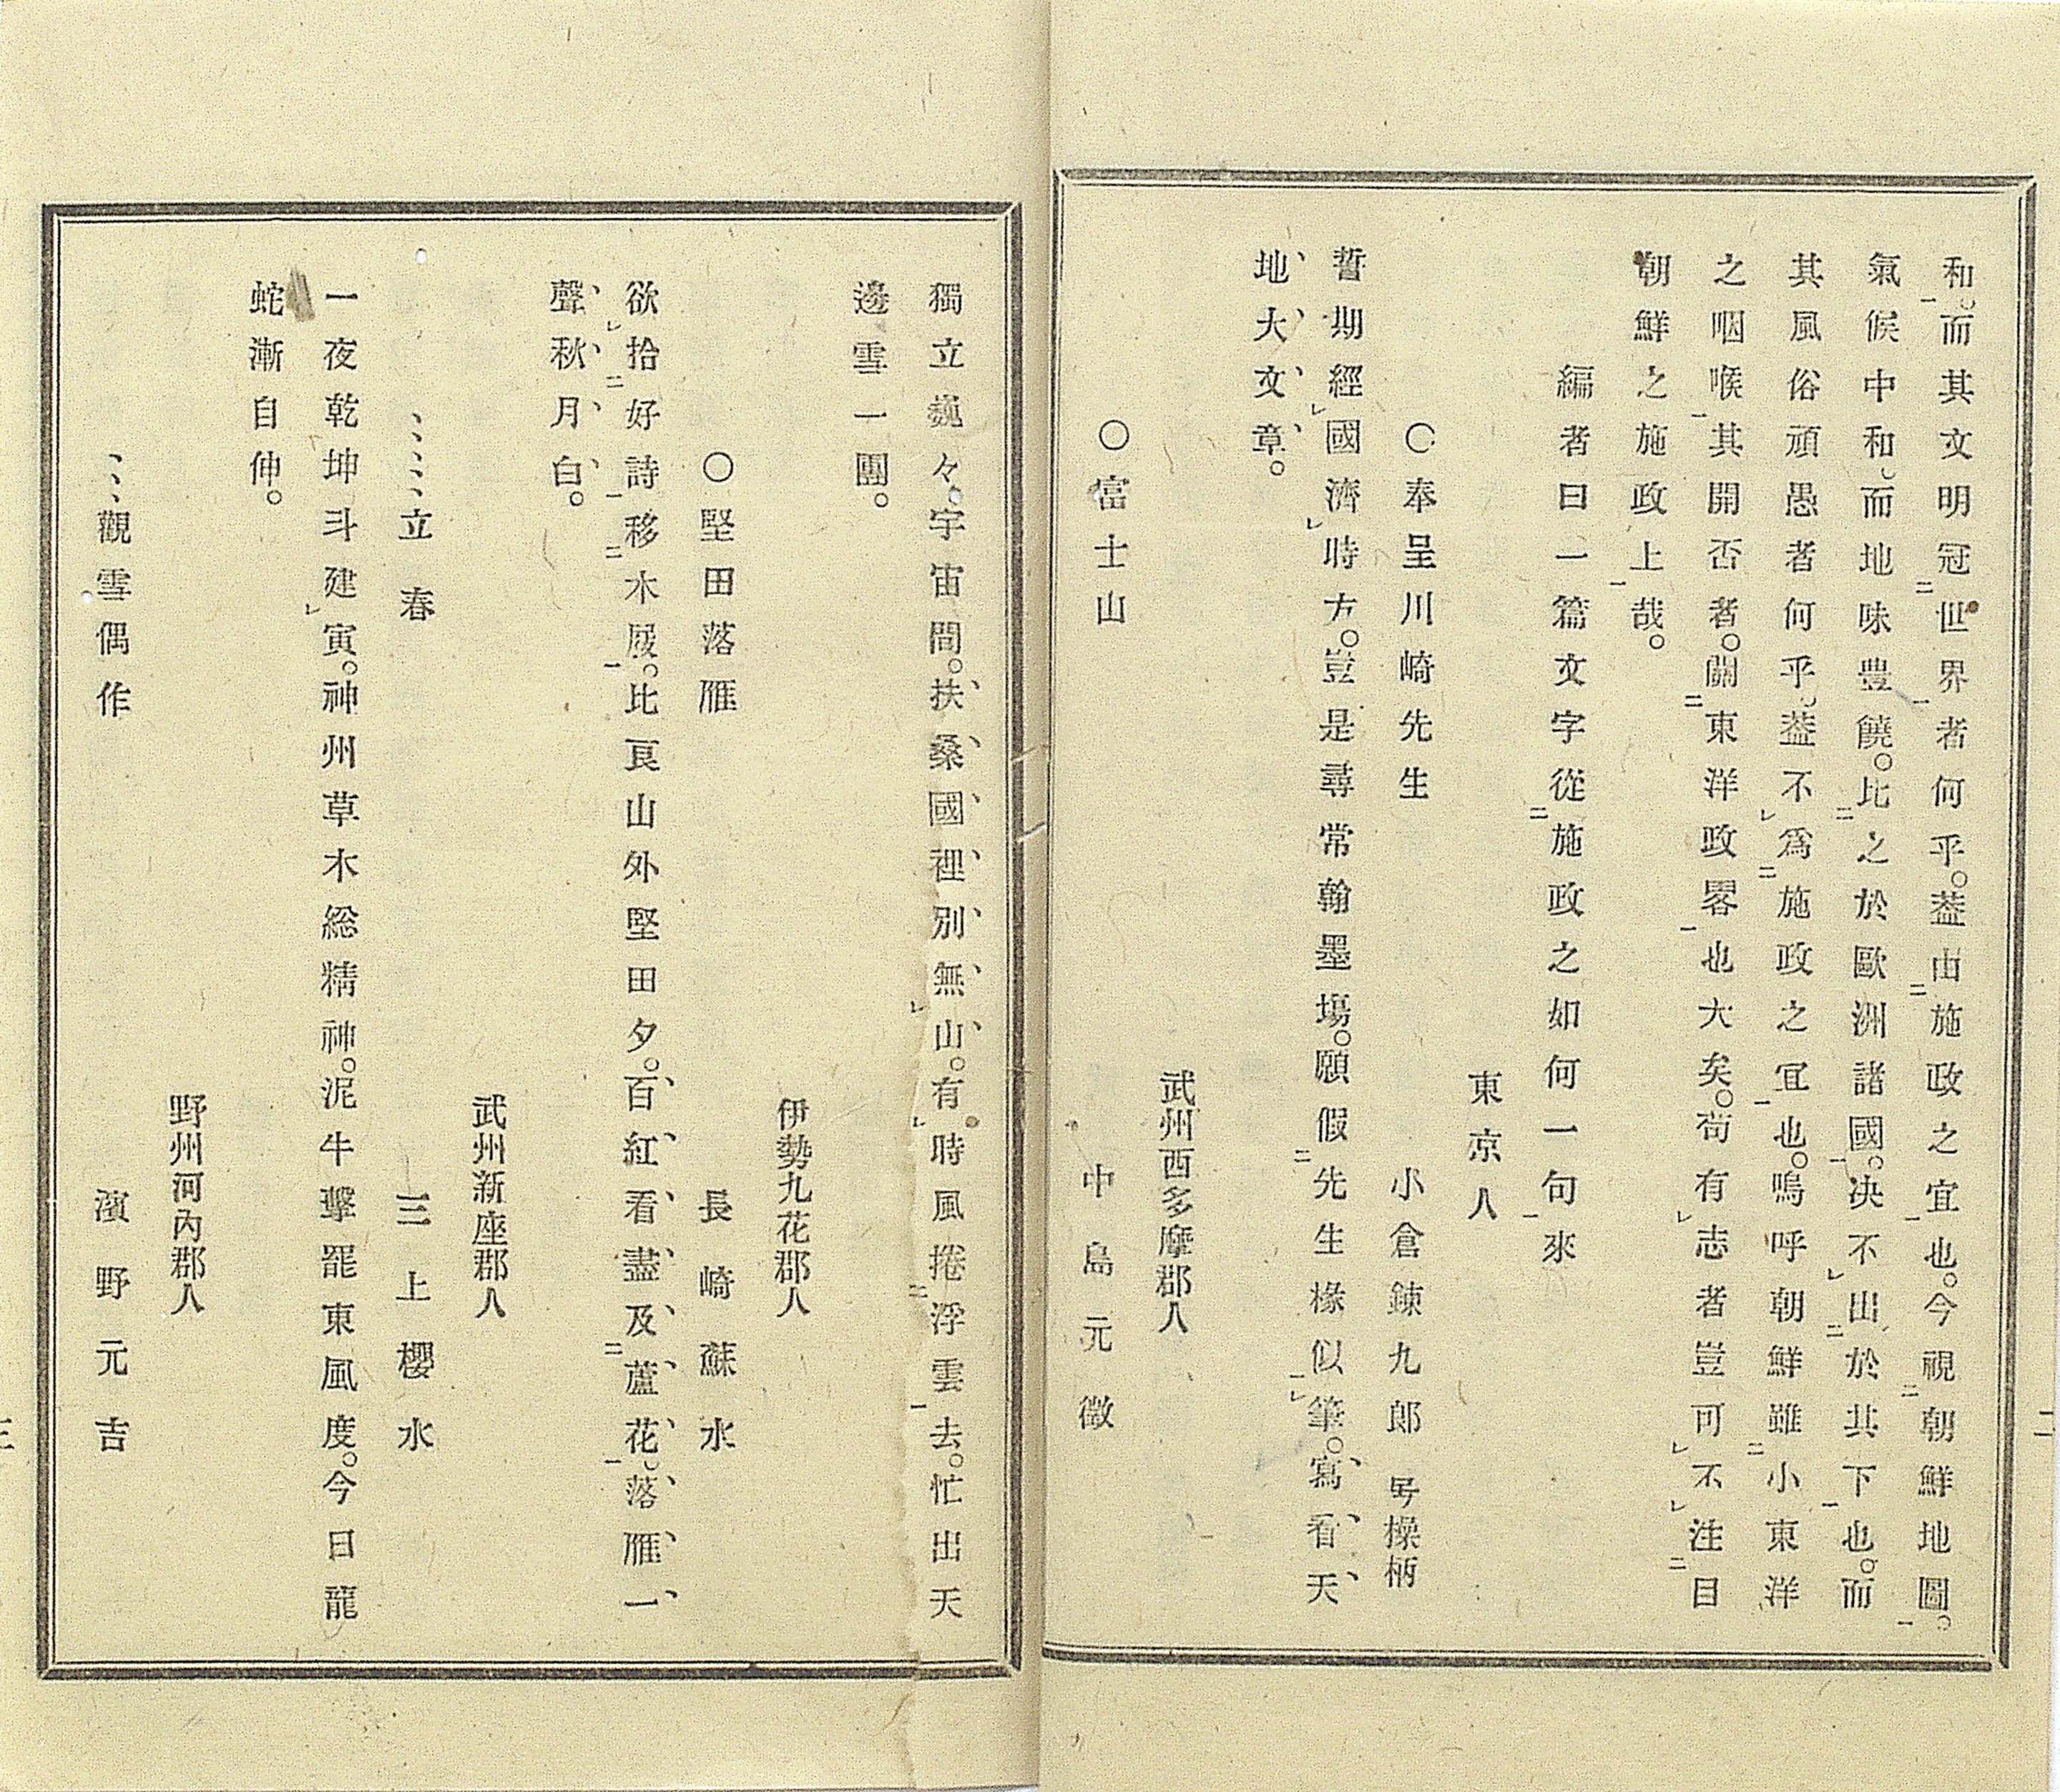 和。而其文明冠世界者何乎。蓋由施政之宜也。今視朝鮮地圖。
氣候中和。而地味豊饒。比之於歐洲諸國。决不出於其下也。而
其風俗頑愚者何乎。蓋不爲施政之宜也。嗚呼朝鮮雖小東洋
之咽喉其開否者。關東洋政畧也大矣。苟有志者豈可不注目
朝鮮之施政上哉。
編者曰一篇文字從施政之如何一句來
東京人
〇奉呈川崎先生　小倉錬九郎　号操柄
誓期經國濟時方。豈是尋常翰墨塲。願假先生椽似筆。寫看天
地大文章。
武州西多摩郡人
〇富士山　中島元徵
二
獨立巍々宇宙間。扶桑國裡別無山。有時風捲浮雲去。忙出天
邊雪一團。
伊勢九花郡人
〇堅田落雁　長崎蘇水
欲拾好詩移木屐。比良山外堅田夕。百紅看盡及蘆花。落雁一
聲秋月白。
武州新座郡人
、、、、、立春　三上櫻水
一夜乾坤斗建寅。神州草木総精神。泥牛擊罷東風度。今日龍
蛇漸自伸。
野州河內郡人
、、、觀雪偶作　濱野元吉
三